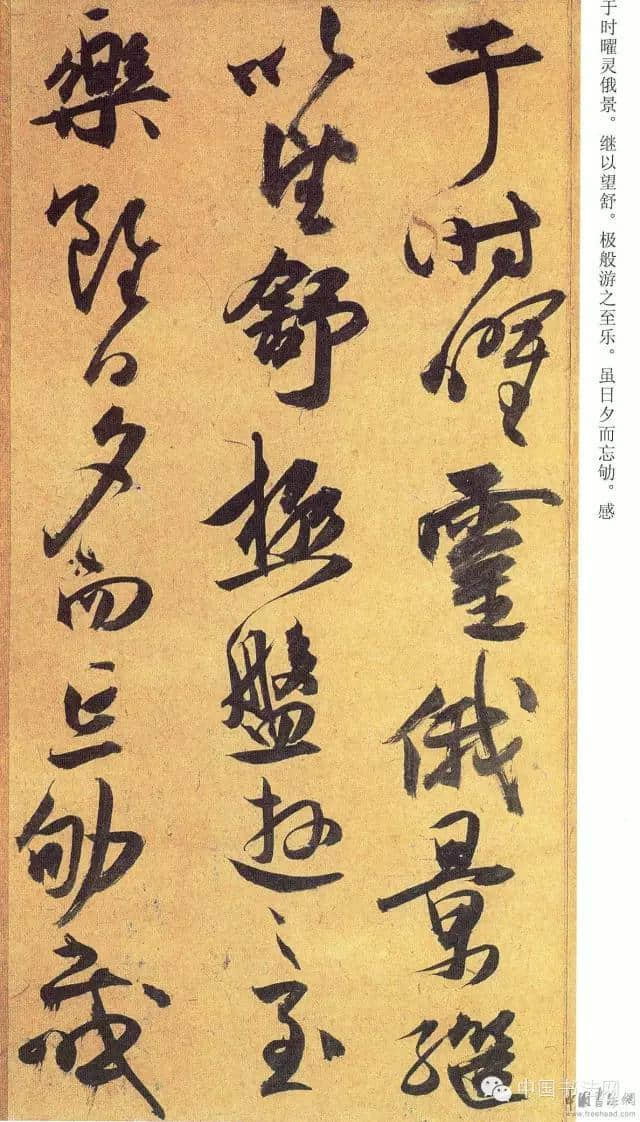 于时曜灵俄景。继以望舒。极般游之至乐。虽日夕而忘劬。感
于时曜靈俄景継
以望舒極盤遊之至
樂雖日夕而忘劬感
中国书法网
www.freehead.com